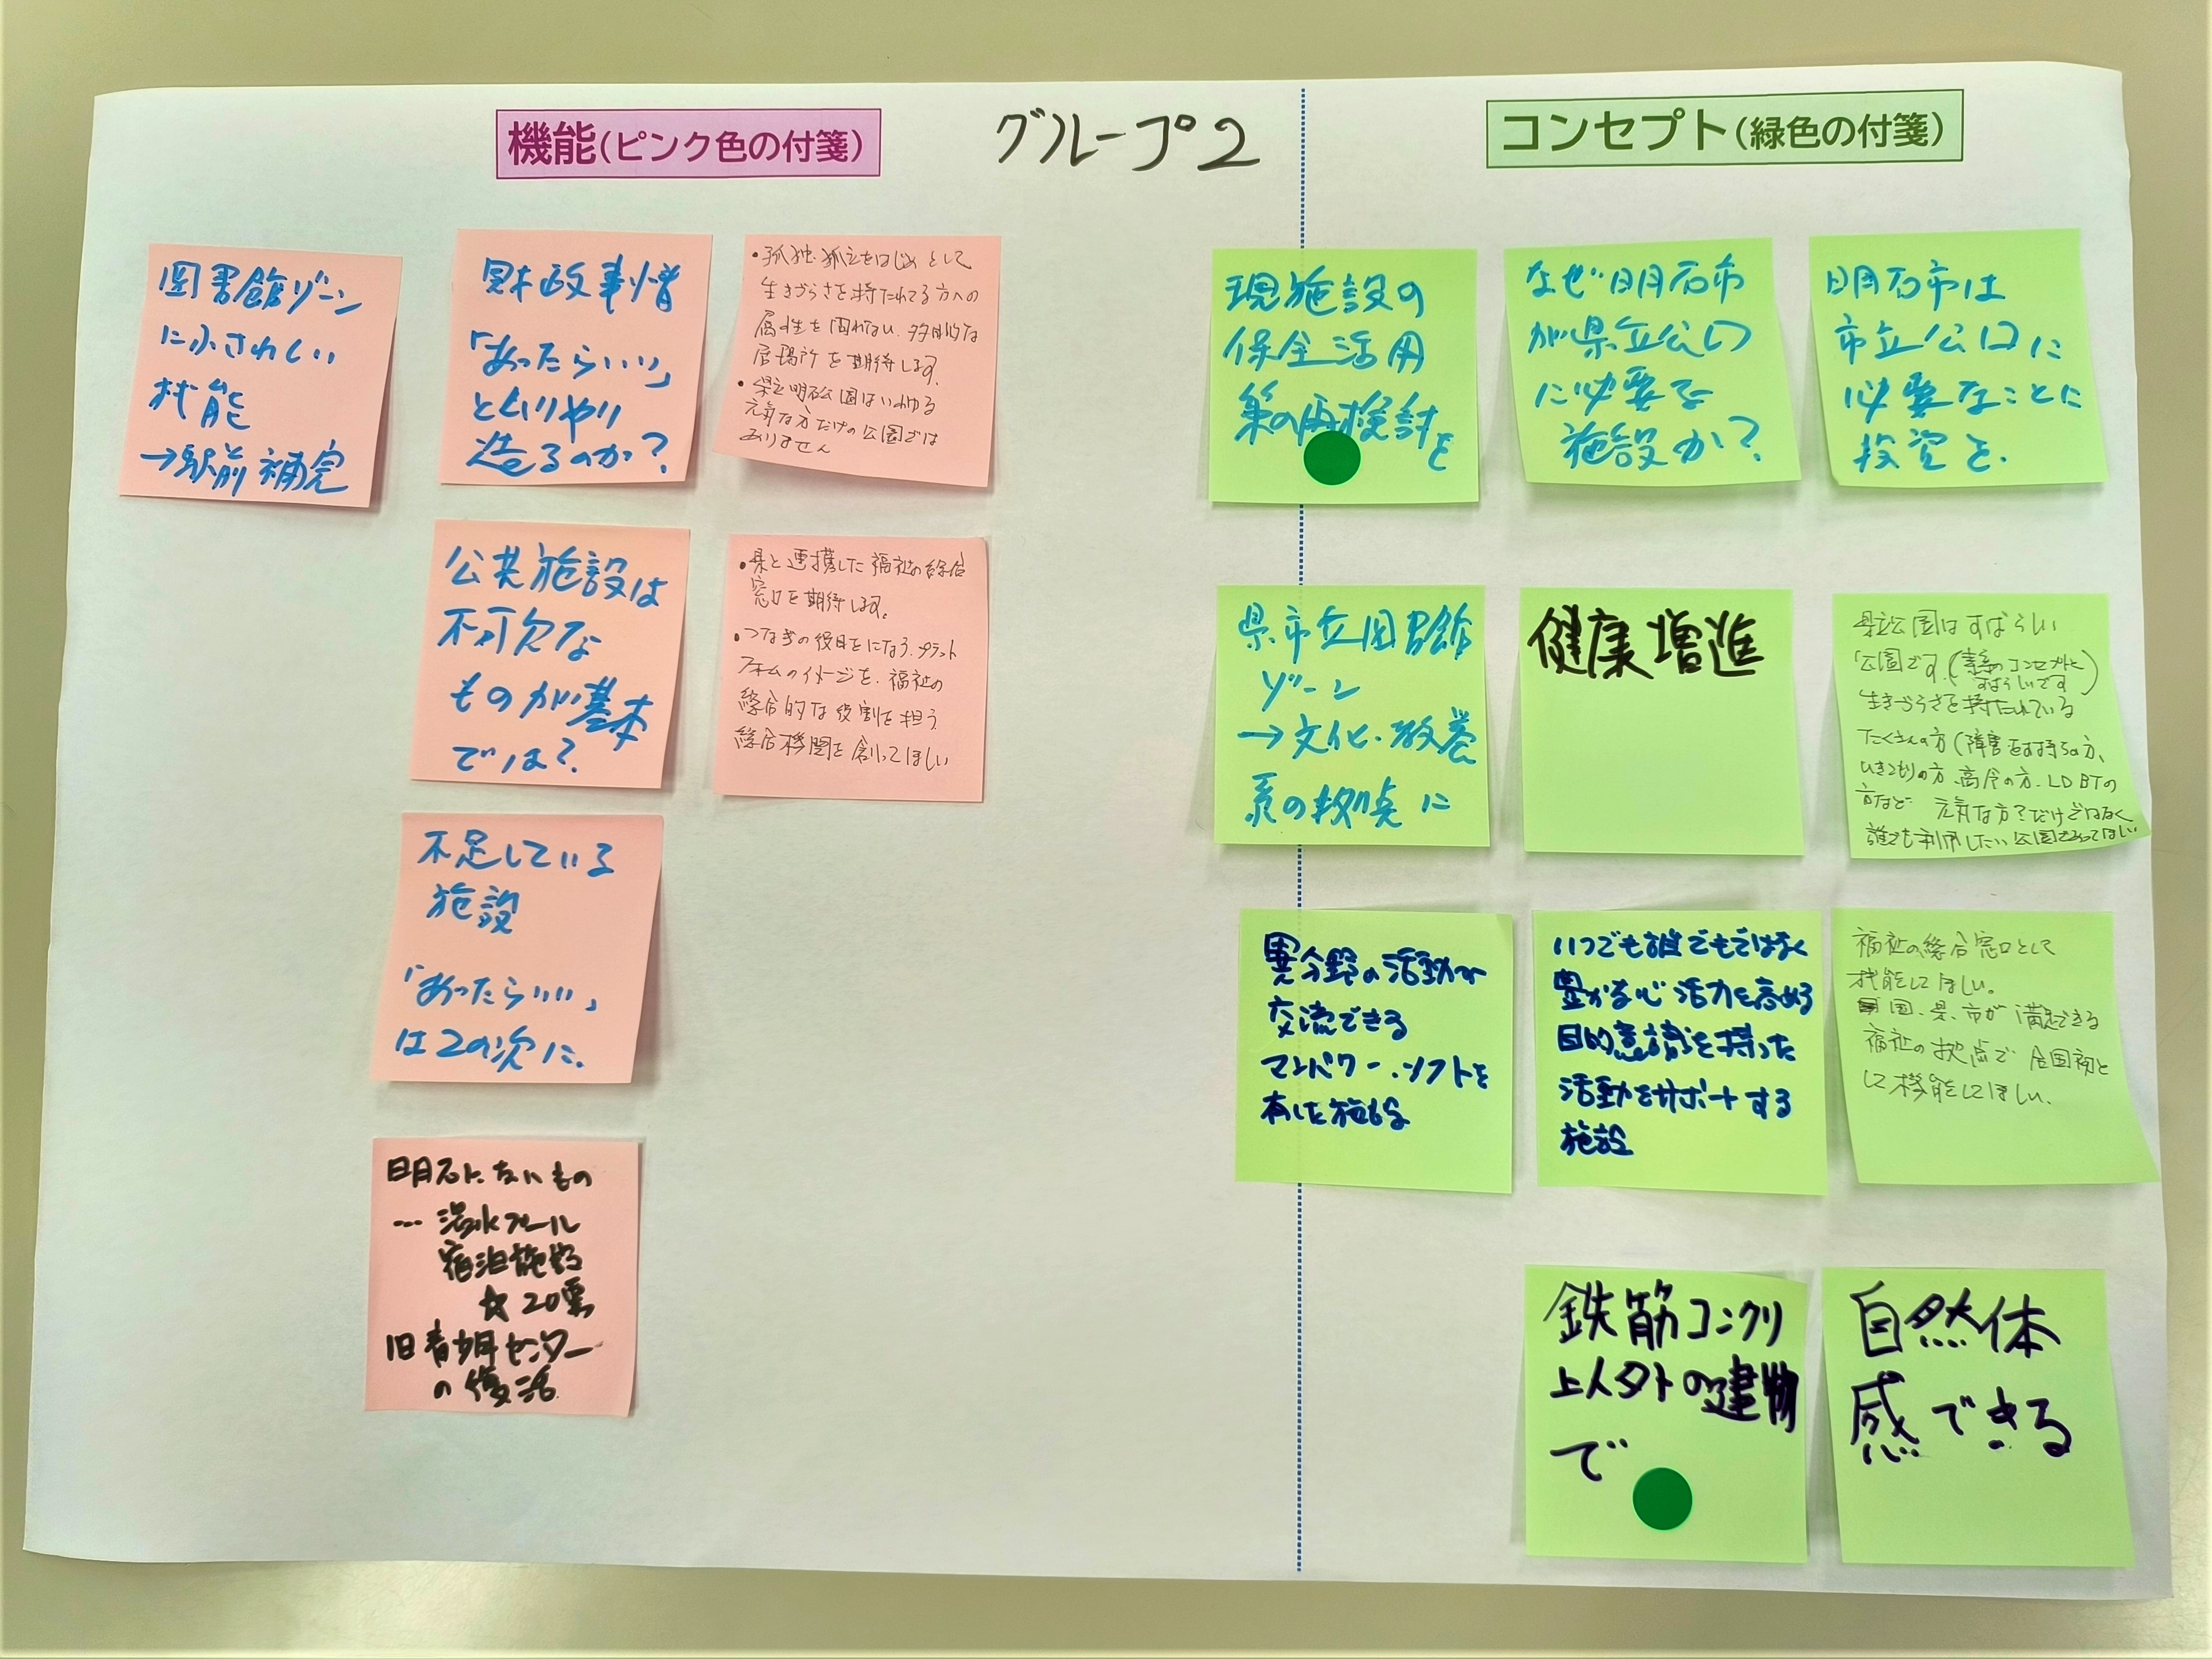 機能(ピンク色の付箋)
グループ2
コンセプト(緑色の付箋)
図書館ゾーン
にふさわしい
機能
→駅前補完
財政事情
「あったらいい」
とムリやり
造るのか?
・孤独・孤立をはじめとして
生きづらさを持たれてる方への
属性を図れない、多目的な
居場所を期待します。
・県立明石公園はいわゆる
元気な方だけの公園では
ありません
公共施設は
不可欠な
ものが基本
では?
・県と連携した福祉の総合
窓口を期待します。
・つなぎの役目をになう、プラット
フォームのイメージを、福祉の
総合的な役割を担う
総合機関を創ってほしい
不足している
施設
「あったらいい」
は2の次に.
明石にないもの
… 温水プール
宿泊施設
☆20票
旧青少年センター
の復活
現施設の
保全活用
策の再検討を
なぜ明石市
が県立公園
に必要な
施設か?
明石市は
市立公園に
必要なことに
投資を.
県市立図書館
ゾーン
→文化・教養
系の拠点に
健康増進
県立公園はすばらしい
公園です。(のコンセプトと
すばらしいです)
生きづらさを持たれている
たくさんの方(障害をお持ちの方、
ひきこもりの方、高令の方、LDBTの
方など 元気な方?だけではなく
誰でも利用したい公園であってほしい
異分野の活動が
交流できる
マンパワー・ソフトを
有した施設
いつでも誰でもではなく
豊かな心 活力を高める
目的意識を持った
活動をサポートする
施設
福祉の総合窓口として
機能してほしい。
国、県、市が満足できる
福祉の拠点で 全国初と
して機能してほしい、
鉄筋コンクリ
ート以外の建物
で
自然体
感できる